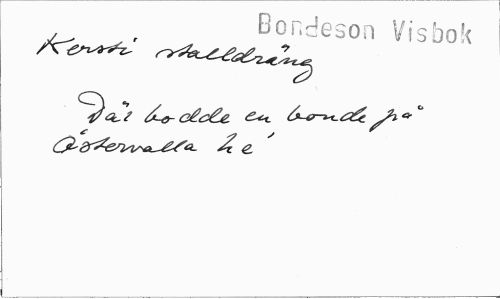 Bondeson Visbok
Kersti stalldräng
Där bodde en bonde på
Östervalla he'